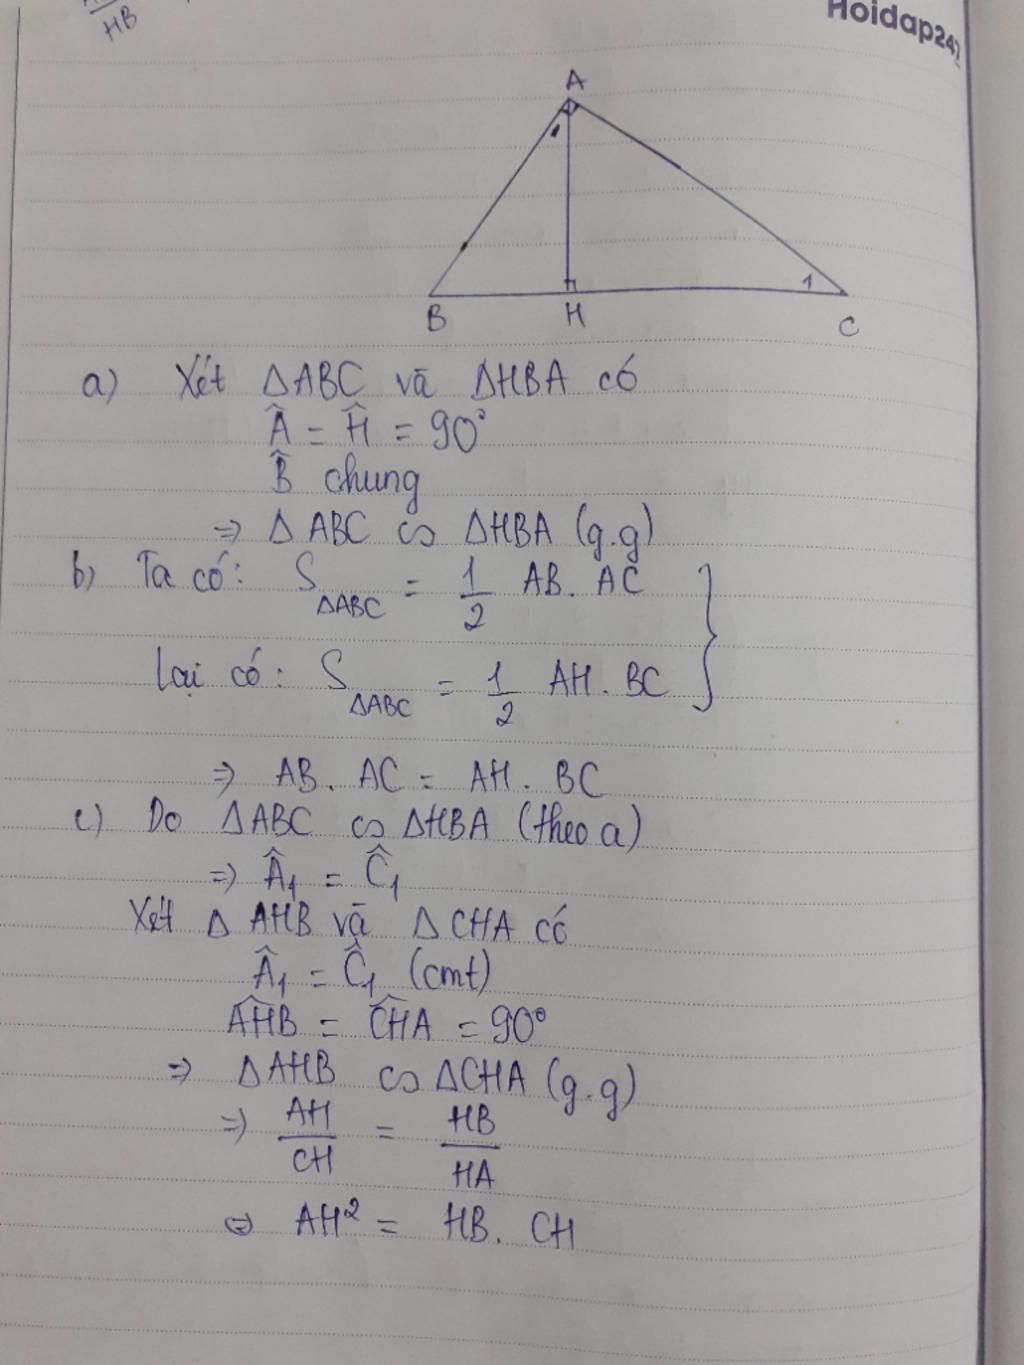 HB
Hoidap247
A
B H 1 C
a) Xét ΔABC và ΔHBA có
Â = Ĥ = 90°
B̂ chung
=> Δ ABC ∽ ΔHBA (g.g)
b) Ta có: S ΔABC = 1/2 AB. AC
Lại có: S ΔABC = 1/2 AH. BC
=> AB. AC = AH. BC
c) Do ΔABC ∽ ΔHBA (theo a)
=> Â₁ = Ĉ₁
Xét Δ AHB và Δ CHA có
Â₁ = Ĉ₁ (cmt)
AHB = CHA = 90°
=> ΔAHB ∽ ΔCHA (g.g)
=> AH/CH = HB/HA
<=> AH² = HB. CH